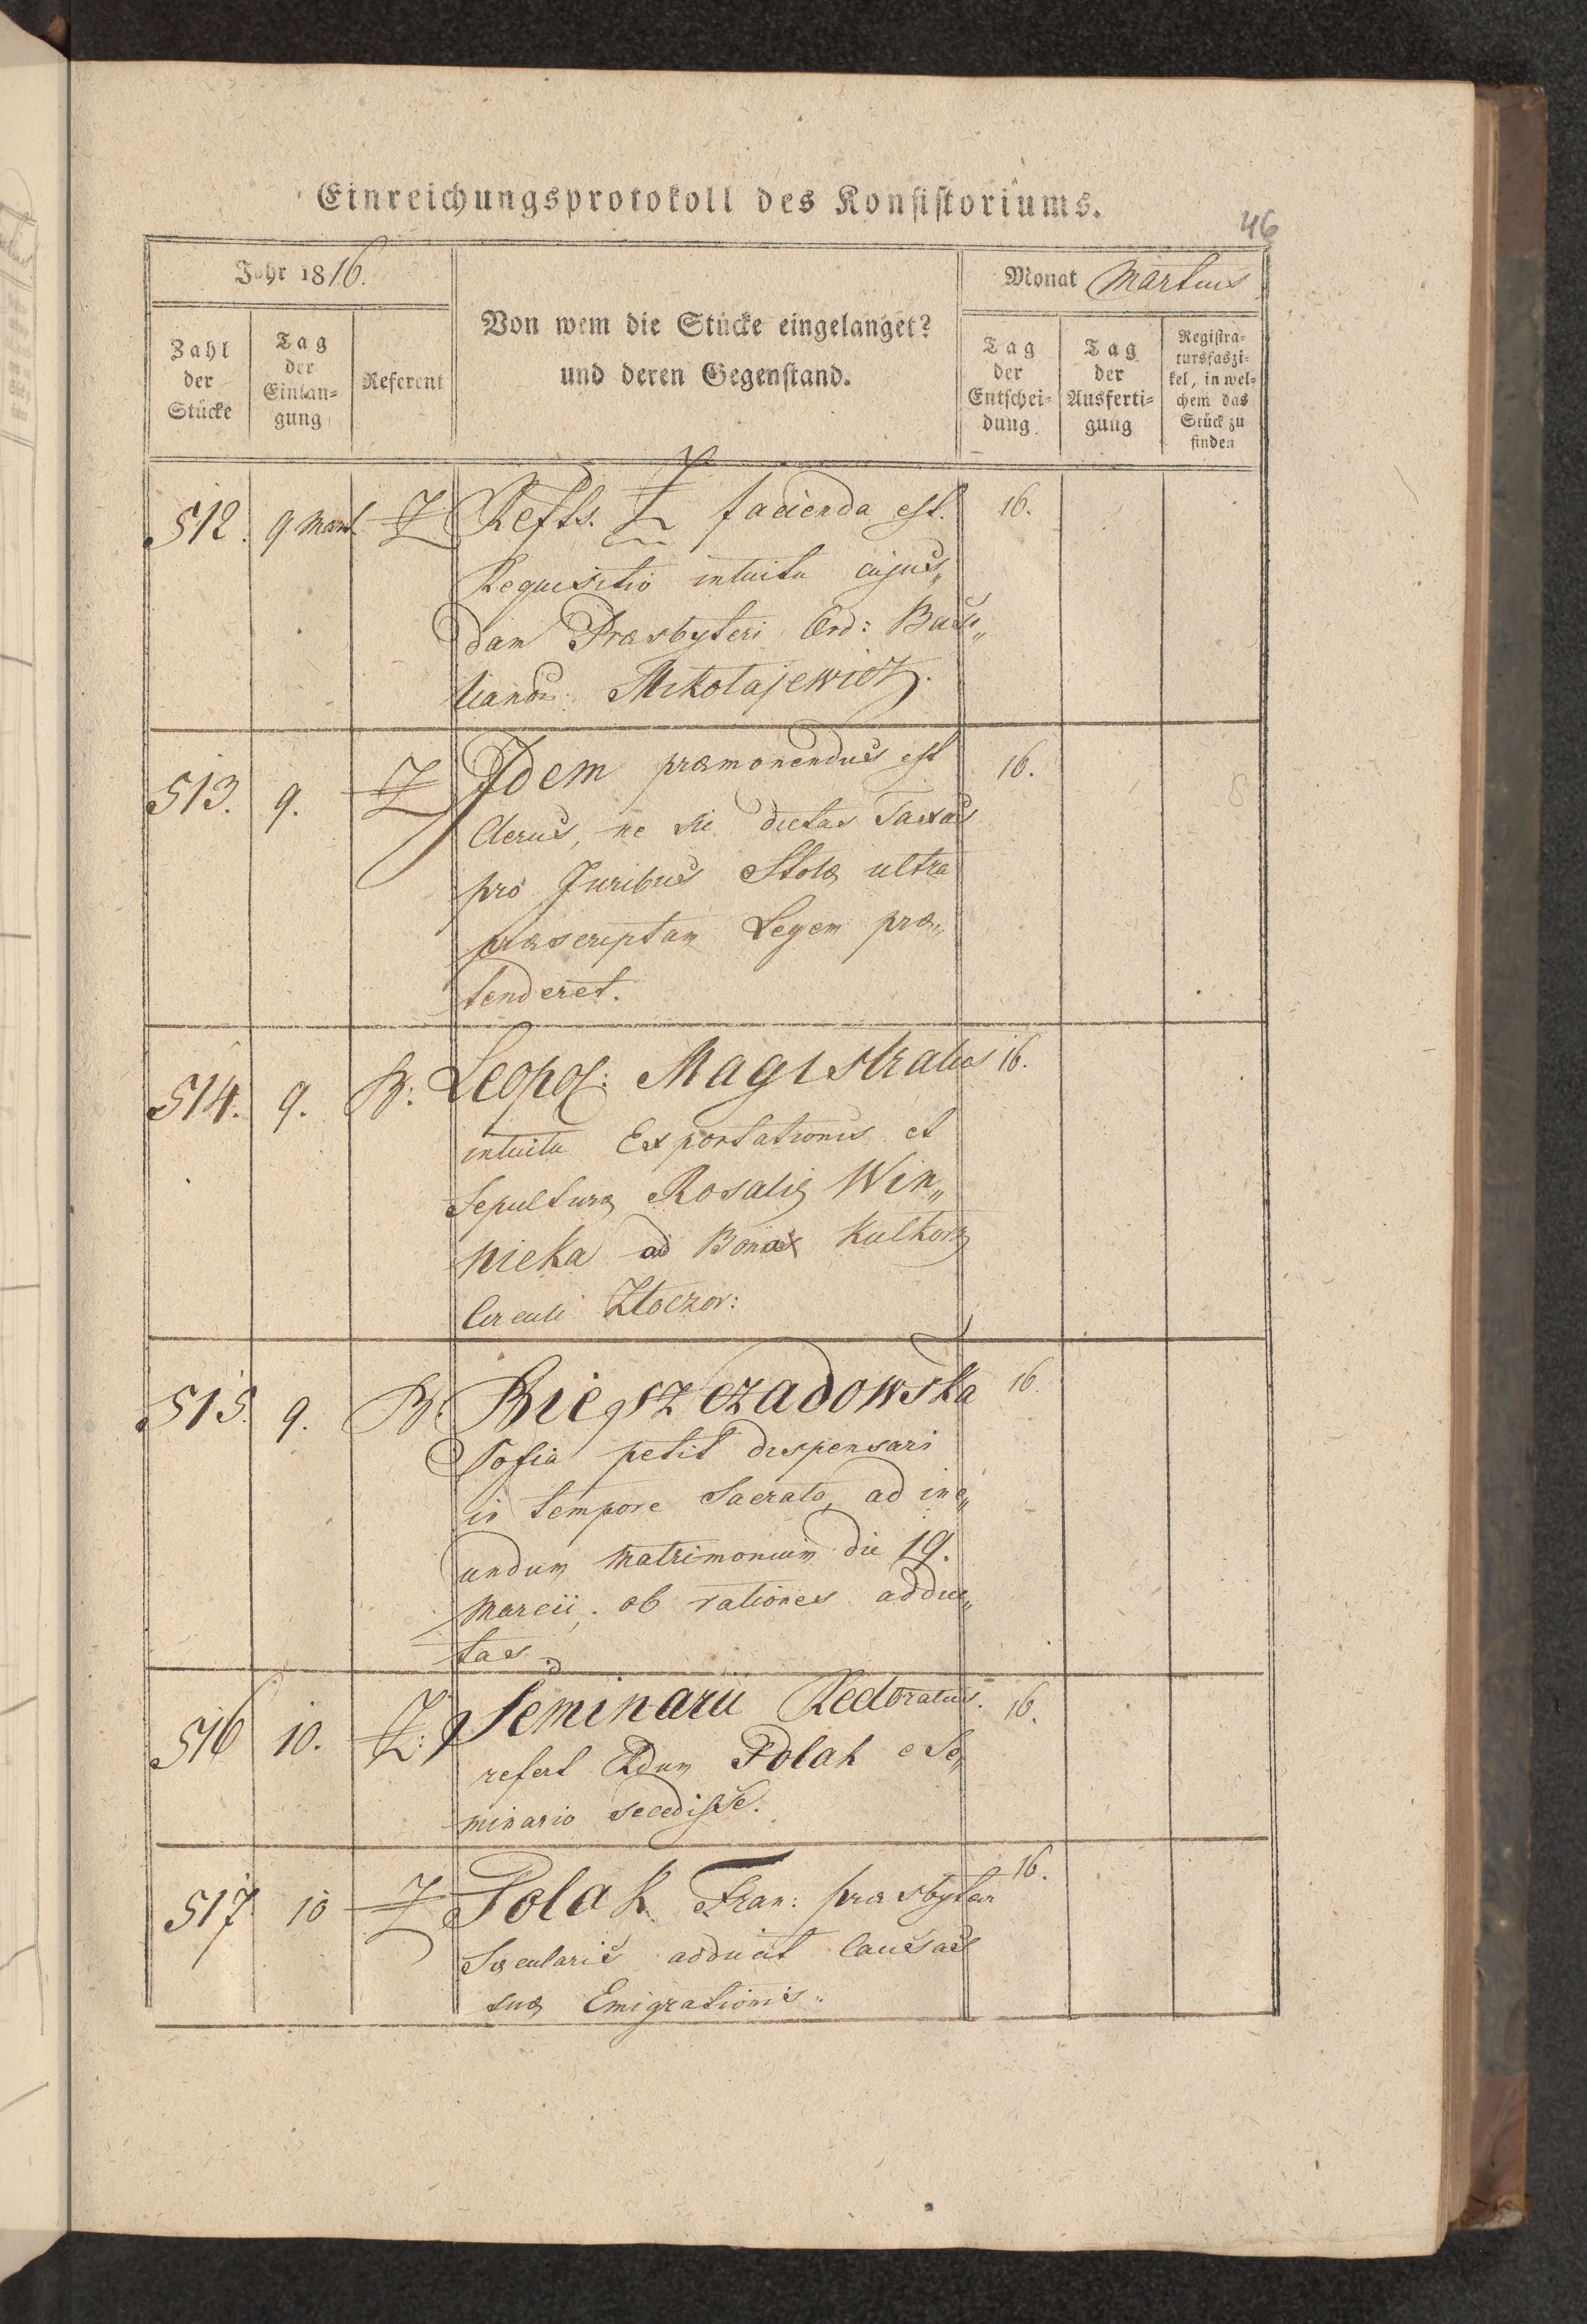 Einreichungsprotokoll des Konsistoriums.
46
Jahr 1816.
Monat Martius
Zahl der Stücke
Tag der Einlangung
Referent
Von wem die Stücke eingelanget?
und deren Gegenstand.
Tag der Entscheidung
Tag der Ausfertigung
Registratursfaszikel, in welchem das Stück zu finden
512. 9 Mart. Z Refts. Z facienda est. 16.
Requisitio intuitu cujus„
dam Præsbyteri Ord: Basi„
lianor: Mikołajewicz.
513. 9. Z Idem præmonendus est 16.
Clerus, ne sic dictas Taxas
pro Juribus Stolæ ultra
præscriptam Legem præ„
tenderet.
514. 9. B: Leopol: Magistratus 16.
intuitu Exportationis et
Sepulturæ Rosaliæ Win„
nicka ad Bona Kulkorz
Circuli Złoczov:
515. 9. B: Biegszczadowska 16.
Sofia petit dispensari
in tempore Sacrato, ad ine„
undum matrimonium die 19.
Marcii, ob rationes adduc„
tas.
516 10. Z: Seminarii Rectoratus. 16.
refert Rdum Polak e Se„
minario secedisse.
517 10 Z Polak Fran: præsbyter 16.
Sæcularis adducit Causas
suæ Emigrationis.